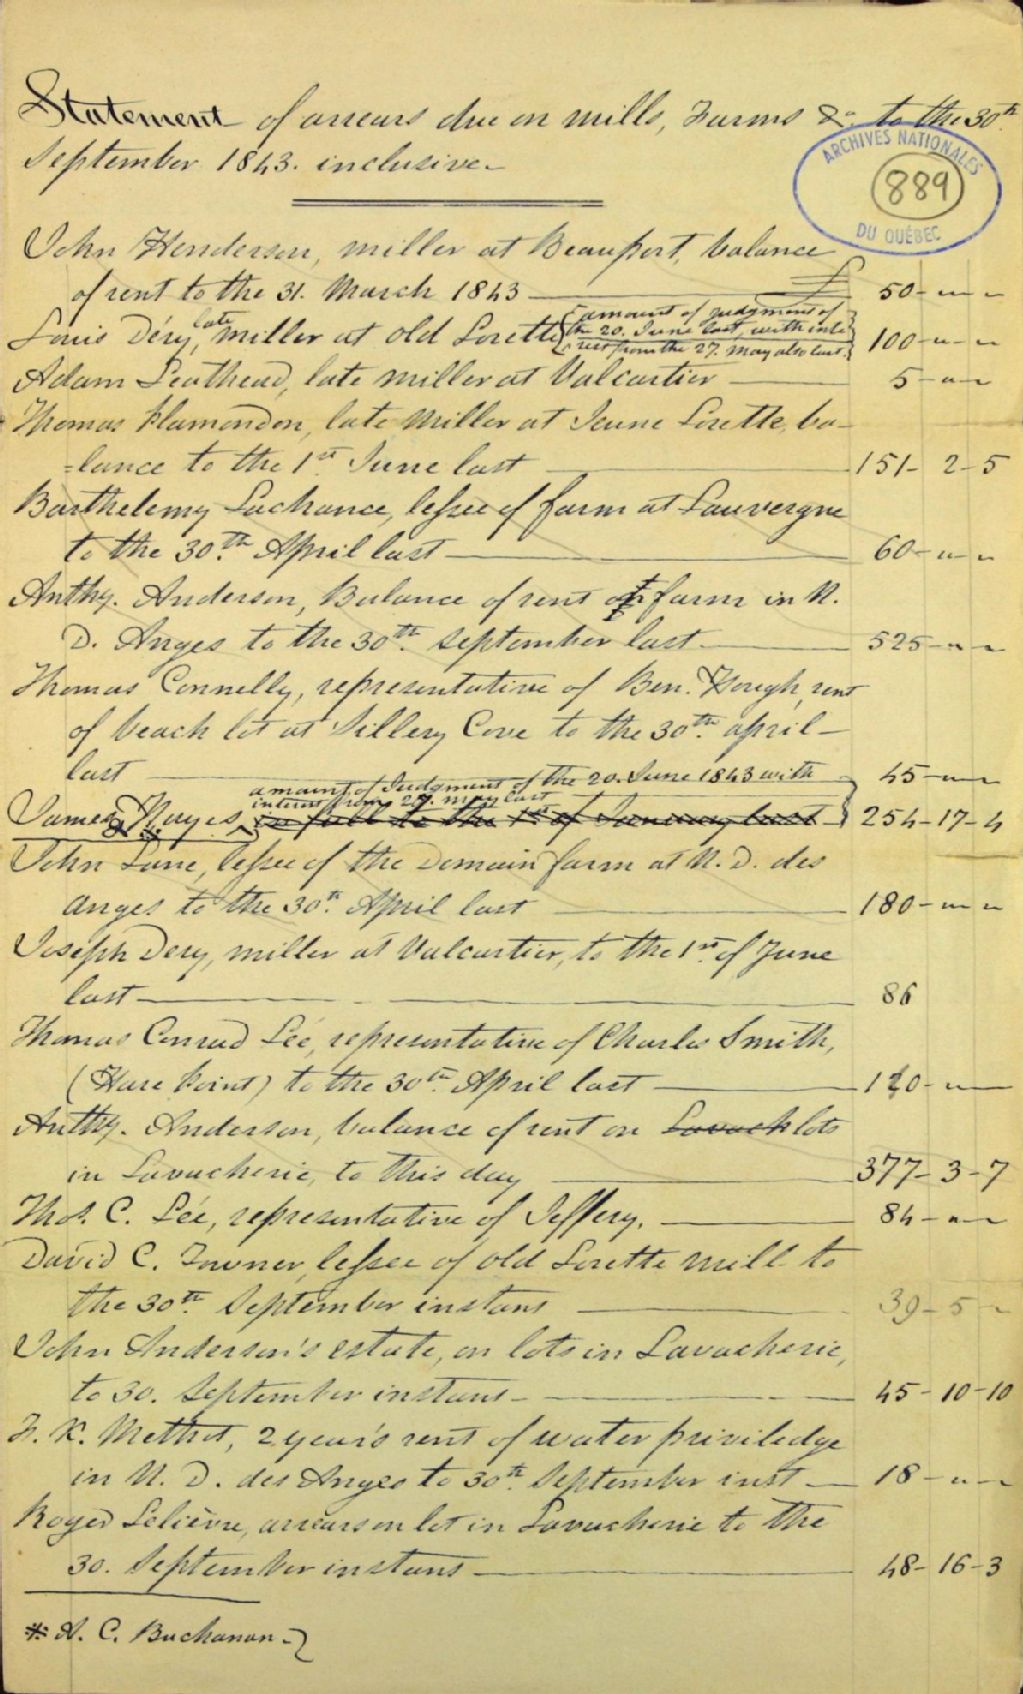 Statement of arrears due on mills, Farms &c. to the 30th.
September 1843. inclusive.
ARCHIVES NATIONALES
889
DU QUÉBEC
John Henderson, miller at Beauport, balance
of rent to the 31. March 1843 £ 50 - " - "
Louis Déry, late miller at old Lorette {amount of judgment of
the 20. June last, with inte
rest from the 27. May also last.} 100 - " - "
Adam Leathead, late miller at Valcartier 5 - " - "
Thomas Plamondon, late Miller at Jeune Lorette, ba-
=lance to the 1st June last 151 - 2 - 5
Barthelemy Lachance, lessee of farm at Lauvergne
to the 30.th April last 60 - " - "
Anthy. Anderson, Balance of rent of farm in N.
D. Anges to the 30th. September last 525 - " - "
Thomas Connelly, representative of Ben. Hough, rent
of beach lot at Sillery Cove to the 30th. april
last 45 - " - "
amount of Judgment of the 20. June 1843 with
interest from 27. may last
James Hayes, in full to the 1st of January last } 254 - 17 - 4
& *
John Lane, lessee of the Domain farm at N. D. des
anges to the 30th. April last 180 - " - "
Joseph Dery, miller at Valcartier, to the 1st. of June
last 86
Thomas Conrad Lée, representative of Charles Smith,
(Hare Point) to the 30th April last 120 - "
Anthy. Anderson, balance of rent on Lavach lots
in Lavacherie, to this day 377 - 3 - 7
Thos. C. Lée, representative of Jeffery. 84 - " - "
David C. Towner, lessee of old Lorette mill to
the 30th. September instant 39 - 5 - "
John Anderson's estate, on lots in Lavacherie,
to 30. September instant 45 - 10 - 10
F. X. Methot, 2 year's rent of water priviledge
in N. D. des Anges to 30th. September inst 18 - " - "
Roger Lelièvre, arrears on lot in Lavacherie to the
30. September instant 48 - 16 - 3
* A. C. Buchanan